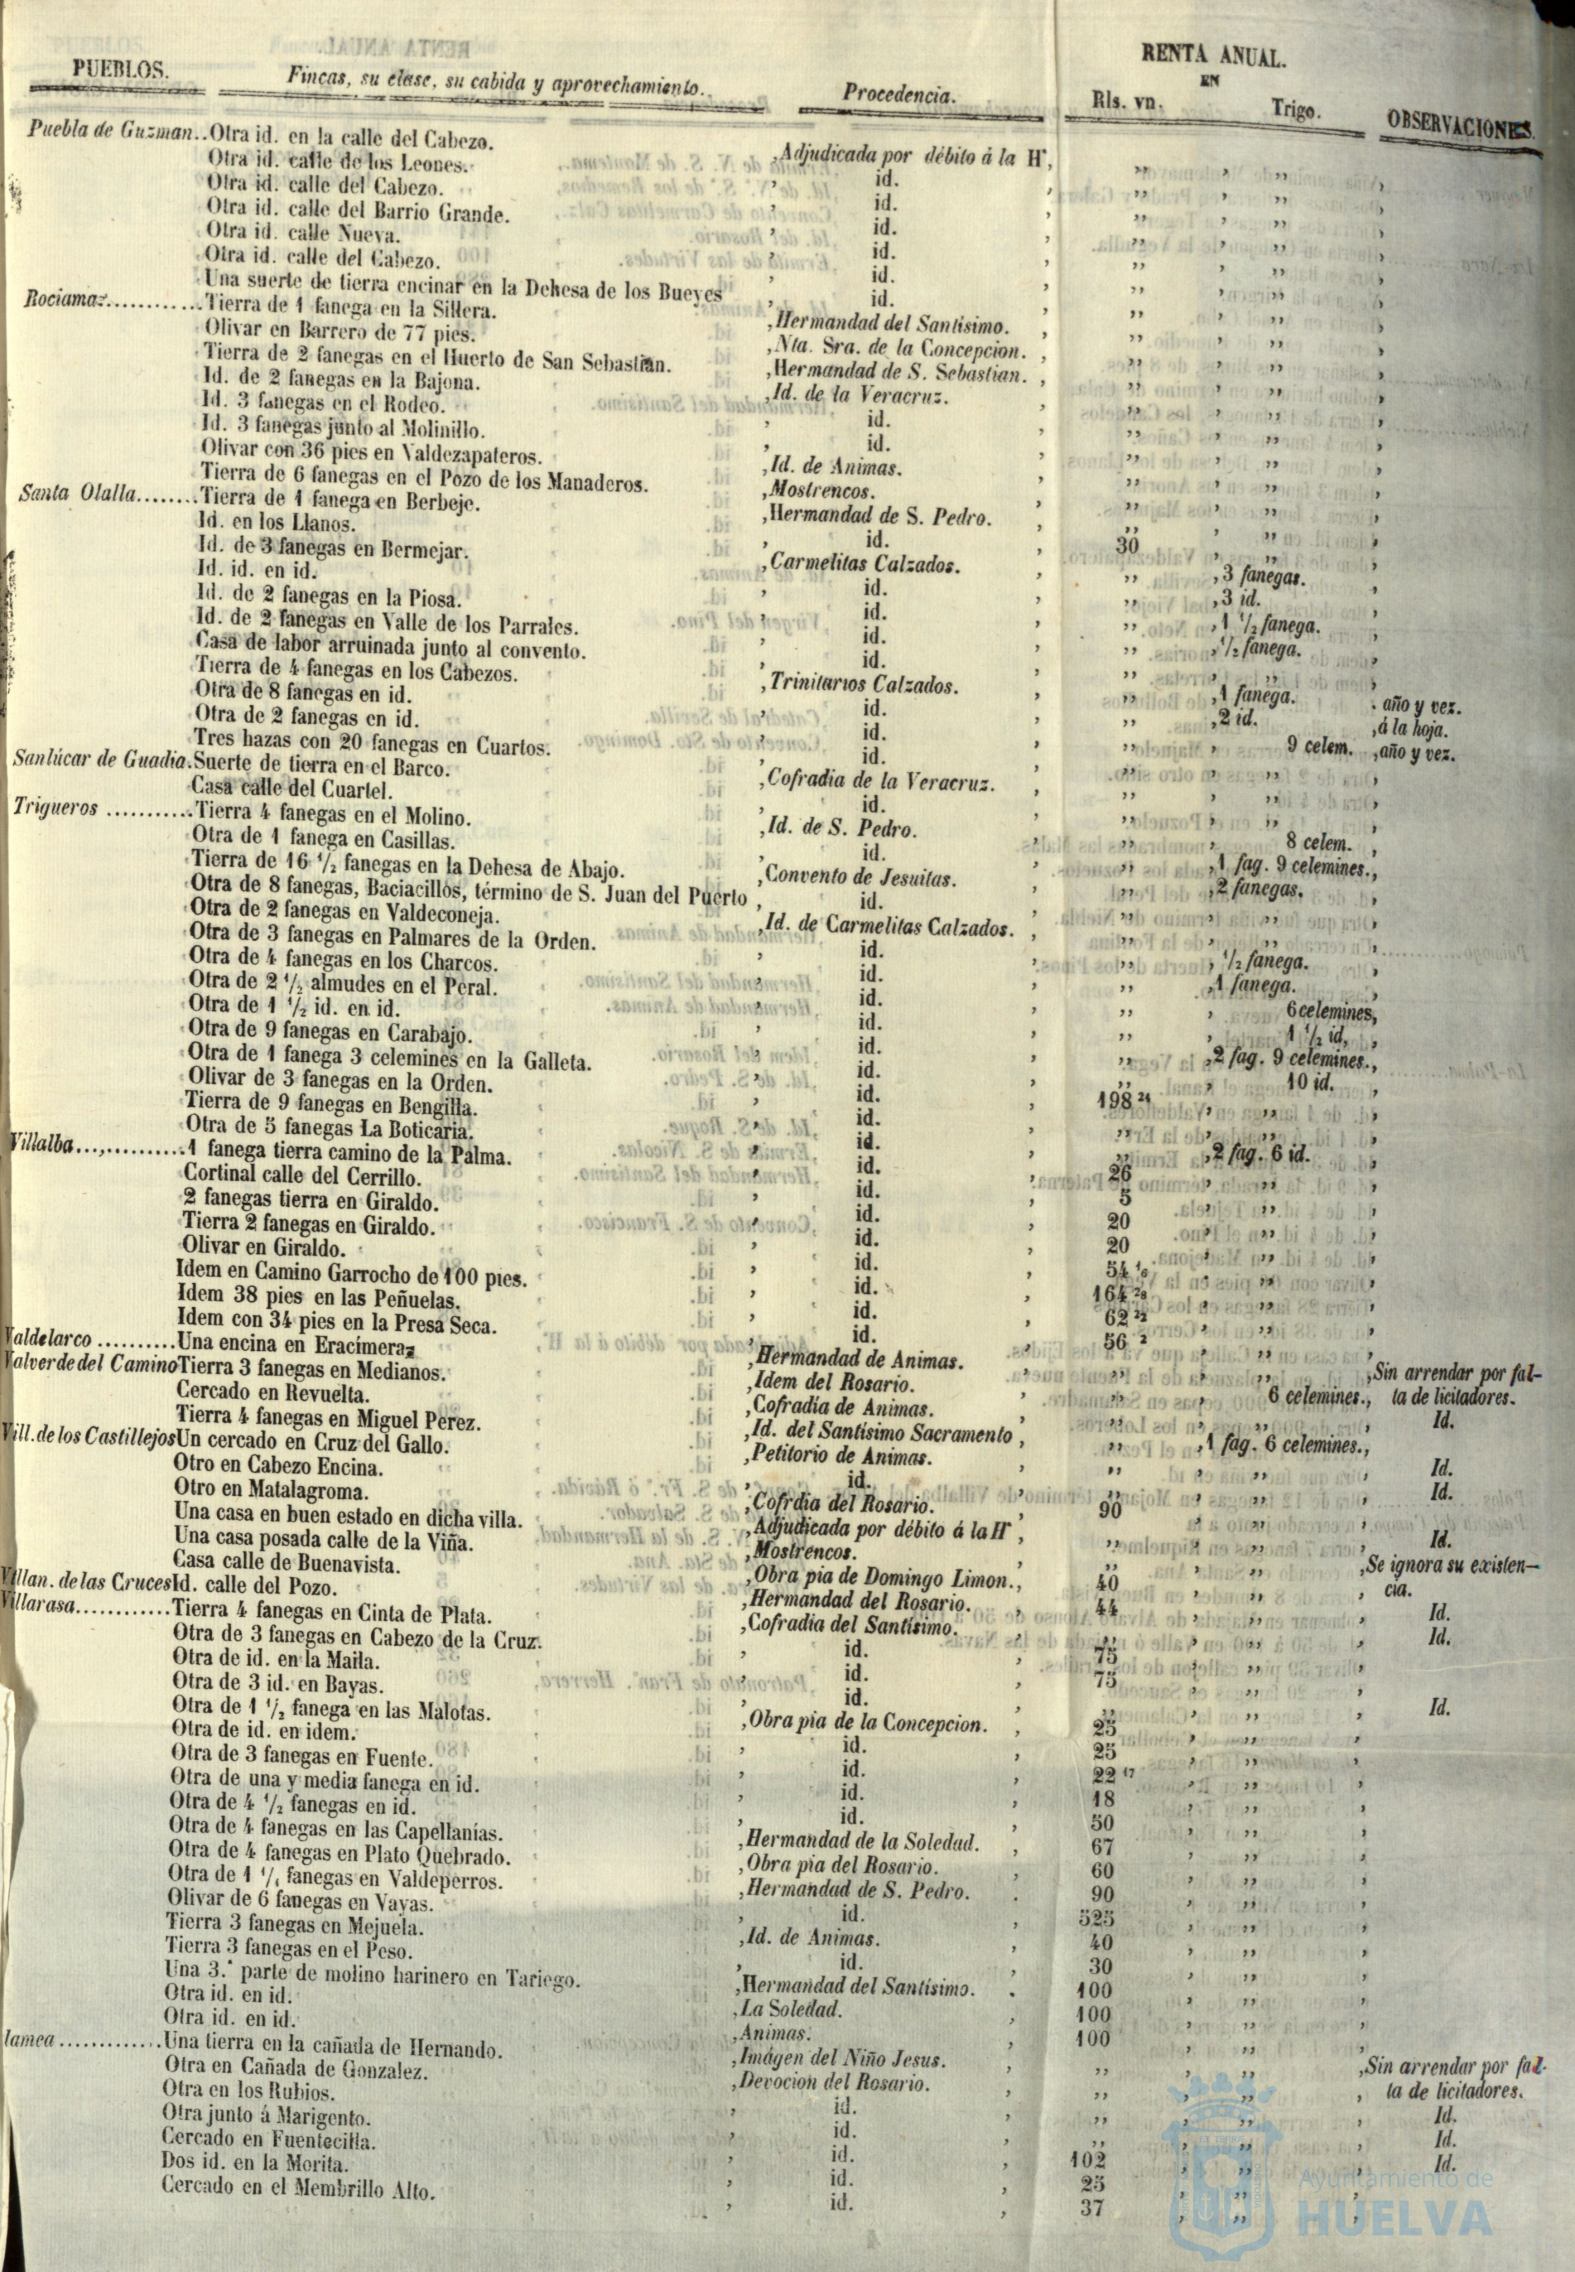 PUEBLOS. Fincas, su clase, su cabida y aprovechamiento. Procedencia. RENTA ANUAL. EN Rls. vn. Trigo. OBSERVACIONES.
Puebla de Guzman..Otra id. en la calle del Cabezo. ,Adjudicada por débito á la Hª, ,, ,,
Otra id. calle de los Leones. id. ,, ,,
Otra id. calle del Cabezo. id. ,, ,,
Otra id. calle del Barrio Grande. id. ,, ,,
Otra id. calle Nueva. id. ,, ,,
Otra id. calle del Cabezo. id. ,, ,,
Una suerte de tierra encinar en la Dehesa de los Bueyes id. ,, ,,
Rociamar............Tierra de 1 fanega en la Sillera. ,Hermandad del Santísimo. ,, ,,
Olivar en Barrero de 77 pies. ,Nta. Sra. de la Concepcion. ,, ,,
Tierra de 2 fanegas en el Huerto de San Sebastian. ,Hermandad de S. Sebastian. ,, ,,
Id. de 2 fanegas en la Bajona. ,Id. de la Veracruz. ,, ,,
Id. 3 fanegas en el Rodeo. id. ,, ,,
Id. 3 fanegas junto al Molinillo. id. ,, ,,
Olivar con 36 pies en Valdezapateros. ,Id. de Animas. ,, ,,
Tierra de 6 fanegas en el Pozo de los Manaderos. ,Mostrencos. ,, ,,
Santa Olalla........Tierra de 1 fanega en Berbeje. ,Hermandad de S. Pedro. ,, ,,
Id. en los Llanos. id. 30 ,,
Id. de 3 fanegas en Bermejar. ,Carmelitas Calzados. ,, ,3 fanegas.
Id. id. en id. id. ,, ,3 id.
Id. de 2 fanegas en la Piosa. id. ,, ,1 1/2 fanega.
Id. de 2 fanegas en Valle de los Parrales. id. ,, ,1/2 fanega.
Casa de labor arruinada junto al convento. id. ,, ,,
Tierra de 4 fanegas en los Cabezos. ,Trinitarios Calzados. ,, ,1 fanega. . año y vez.
Otra de 8 fanegas en id. id. ,, ,2 id. ,á la hoja.
Otra de 2 fanegas en id. id. ,, 9 celem. ,año y vez.
Tres hazas con 20 fanegas en Cuartos. id. ,, ,,
Sanlúcar de Guadia.Suerte de tierra en el Barco. ,Cofradia de la Veracruz. ,, ,,
Casa calle del Cuartel. id. ,, ,,
Trigueros ...........Tierra 4 fanegas en el Molino. ,Id. de S. Pedro. ,, 8 celem. ,
Otra de 1 fanega en Casillas. id. ,, ,1 fag. 9 celemines.,
Tierra de 16 1/2 fanegas en la Dehesa de Abajo. ,Convento de Jesuitas. ,, ,2 fanegas. ,
Otra de 8 fanegas, Baciacillos, término de S. Juan del Puerto , id. ,, ,,
Otra de 2 fanegas en Valdeconeja. ,Id. de Carmelitas Calzados. ,, ,,
Otra de 3 fanegas en Palmares de la Orden. id. ,, , 1/2 fanega.
Otra de 4 fanegas en los Charcos. id. ,, ,1 fanega.
Otra de 2 1/2 almudes en el Peral. id. ,, 6 celemines,
Otra de 1 1/2 id. en id. id. ,, 1 1/2 id, ,
Otra de 9 fanegas en Carabajo. id. ,, ,2 fag. 9 celemines.,
Otra de 1 fanega 3 celemines en la Galleta. id. ,, 10 id. ,
Olivar de 3 fanegas en la Orden. id. 198 24 ,,
Tierra de 9 fanegas en Bengilla. id. ,, ,,
Otra de 5 fanegas La Boticaria. id. ,, ,2 fag. 6 id. ,
Villalba...,..........1 fanega tierra camino de la Palma. id. 26 ,,
Cortinal calle del Cerrillo. id. 5 ,,
2 fanegas tierra en Giraldo. id. 20 ,,
Tierra 2 fanegas en Giraldo. id. 20 ,,
Olivar en Giraldo. id. 54 16 ,,
Idem en Camino Garrocho de 100 pies. id. 164 28 ,,
Idem 38 pies en las Peñuelas. id. 62 22 ,,
Idem con 34 pies en la Presa Seca. id. 56 2 ,,
Valdelarco ..........Una encina en Eracímera, ,Hermandad de Animas. ,, ,, ,Sin arrendar por fal-
Valverde del Camino Tierra 3 fanegas en Medianos. ,Idem del Rosario. ,, 6 celemines., ta de licitadores.
Cercado en Revuelta. ,Cofradía de Animas. ,, ,, Id.
Tierra 4 fanegas en Miguel Perez. ,Id. del Santísimo Sacramento , ,, ,1 fag. 6 celemines.,
Vill. de los Castillejos Un cercado en Cruz del Gallo. ,Petitorio de Animas. ,, ,, Id.
Otro en Cabezo Encina. id. ,, ,, Id.
Otro en Matalagroma. ,Cofrdia del Rosario. 90 ,,
Una casa en buen estado en dicha villa. ,Adjudicada por débito á la Hª , ,, ,, Id.
Una casa posada calle de la Viña. ,Mostrencos. ,, ,, ,Se ignora su existen-
Casa calle de Buenavista. ,Obra pia de Domingo Limon., 40 ,, cia.
Villan. de las Cruces Id. calle del Pozo. ,Hermandad del Rosario. 44 ,, Id.
Villarasa............Tierra 4 fanegas en Cinta de Plata. ,Cofradia del Santísimo. ,, ,, Id.
Otra de 3 fanegas en Cabezo de la Cruz. id. 75 ,,
Otra de id. en la Maila. id. 75 ,,
Otra de 3 id. en Bayas. id. ,, ,, Id.
Otra de 1 1/2 fanega en las Malotas. ,Obra pia de la Concepcion. 25 ,,
Otra de id. en idem. id. 25 ,,
Otra de 3 fanegas en Fuente. id. 22 17 ,,
Otra de una y media fanega en id. id. 18 ,,
Otra de 4 1/2 fanegas en id. id. 50 ,,
Otra de 4 fanegas en las Capellanías. ,Hermandad de la Soledad. 67 ,,
Otra de 4 fanegas en Plato Quebrado. ,Obra pia del Rosario. 60 ,,
Otra de 1 1/4 fanegas en Valdeperros. ,Hermandad de S. Pedro. 90 ,,
Olivar de 6 fanegas en Vayas. id. 525 ,,
Tierra 3 fanegas en Mejuela. ,Id. de Animas. 40 ,,
Tierra 3 fanegas en el Peso. id. 30 ,,
Una 3.ª parte de molino harinero en Tariego. ,Hermandad del Santísimo. 100 ,,
Otra id. en id. ,La Soledad. 100 ,,
Otra id. en id. ,Animas. 100 ,,
lamea .............Una tierra en la cañada de Hernando. ,Imágen del Niño Jesus. ,, ,, ,Sin arrendar por fal-
Otra en Cañada de Gonzalez. ,Devocion del Rosario. ,, ,, ta de licitadores.
Otra en los Rubios. id. ,, ,, Id.
Otra junto á Marigento. id. ,, ,, Id.
Cercado en Fuentecilla. id. 102 ,, Id.
Dos id. en la Morita. id. 25 ,,
Cercado en el Membrillo Alto. id. 37 ,,
Ayuntamiento de
HUELVA